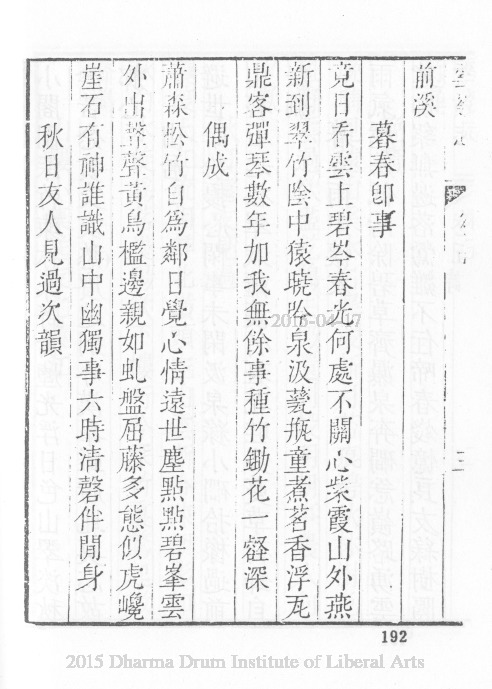 前溪
暮春卽事
竟日看雲上碧岑春光何處不關心紫霞山外燕
新到翠竹陰中猿曉吟泉汲甆瓶童煮茗香浮瓦
鼎客彈琴數年加我無餘事種竹鋤花深
偶成
蕭森松竹自為鄰日覺心情遠世塵點點碧峯雲
外出聲聲黃鳥檻邊親如虬盤屈藤多態似虎巉
崖石有神誰識山中幽獨事六時淸磬伴閒身
秋日友人見過次韻
192
2015 Dharma Drum Institute of Liberal Arts